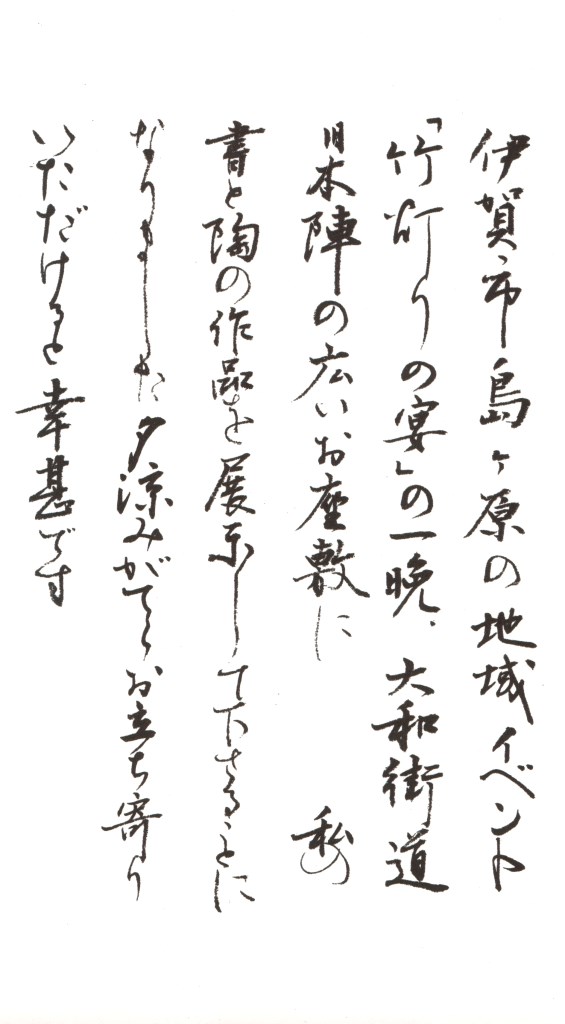 伊賀市島ヶ原の地域イベント
「竹灯りの宴」の一晩、大和街道
旧本陣の広いお座敷に 私の
書と陶の作品を展示して下さることに
なりました 夕涼みがてらお立ち寄り
いただけると幸甚です